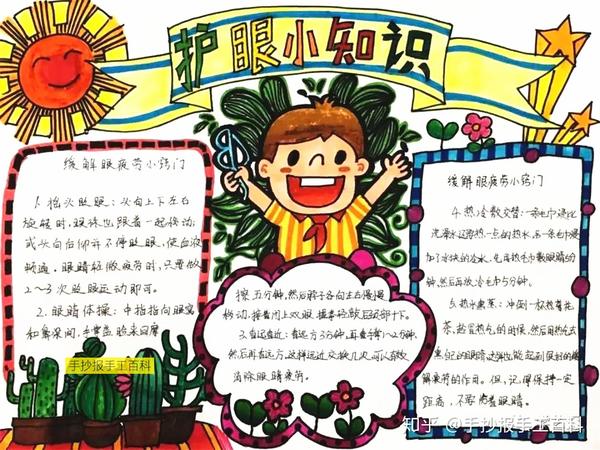 护眼小知识
缓解眼疲劳小窍门
1. 摇头眨眼：头向上下左右
旋转时，眼球也跟着一起移动；
或头向后仰并不停眨眼，使血液
畅通。眼睛轻微疲劳时，只要做
2～3次眨眼运动即可。
2. 眼睛体操：中指指向眼窝
和鼻梁间，手掌盖脸来回摩
手抄报手工百科
擦五分钟，然后脖子各向左右慢慢
移动，接着闭上双眼，握拳轻敲后颈部十下。
3. 看远看近：看远方3分钟，再看手掌1～2分钟，
然后再看远方，这样远近交换几次，可以有效
消除眼睛疲劳。
缓解眼疲劳小窍门
4. 热冷敷交替：一条毛巾浸比
洗澡水还热一点的热水，另一条毛巾浸
加了冰块的冷水，先再热毛巾敷眼睛约
钟，然后再放冷毛巾5分钟。
5. 热冲熏蒸：冲倒一杯热菊花
茶，趁冒热气的时候，然后用热气去
熏自己的眼睛，这样也能起到很好的缓
解疲劳的作用。但，记得保持一定
距离，不要伤着眼睛。
知乎 @手抄报手工百科